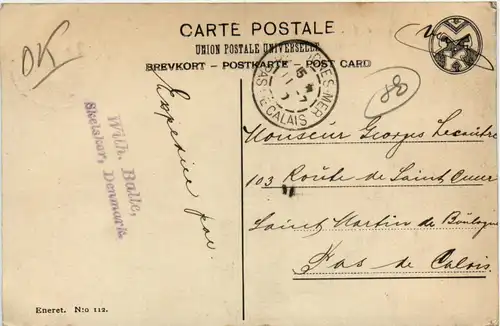 CARTE POSTALE
UNION POSTALE UNIVERSELLE
BREVKORT - POSTKARTE - POST CARD
OK
88
PAS DE CALAIS
Expédiée par
Wilh. Balle,
Skelskør, Denmark.
Monsieur Georges Lecoutre
103 Route de Saint Omer
Saint Martin de Boulogne
Pas de Calais
Eneret. N:o 112.